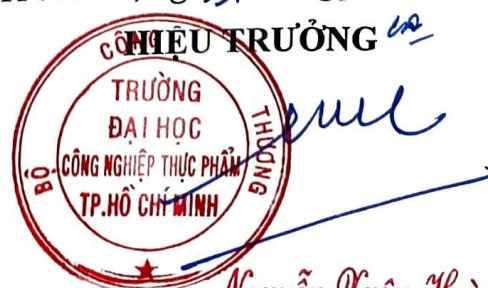 HIỆU TRƯỞNG
BỘ CÔNG THƯƠNG
TRƯỜNG
ĐẠI HỌC
CÔNG NGHIỆP THỰC PHẨM
TP.HỒ CHÍ MINH
Nguyễn Xuân